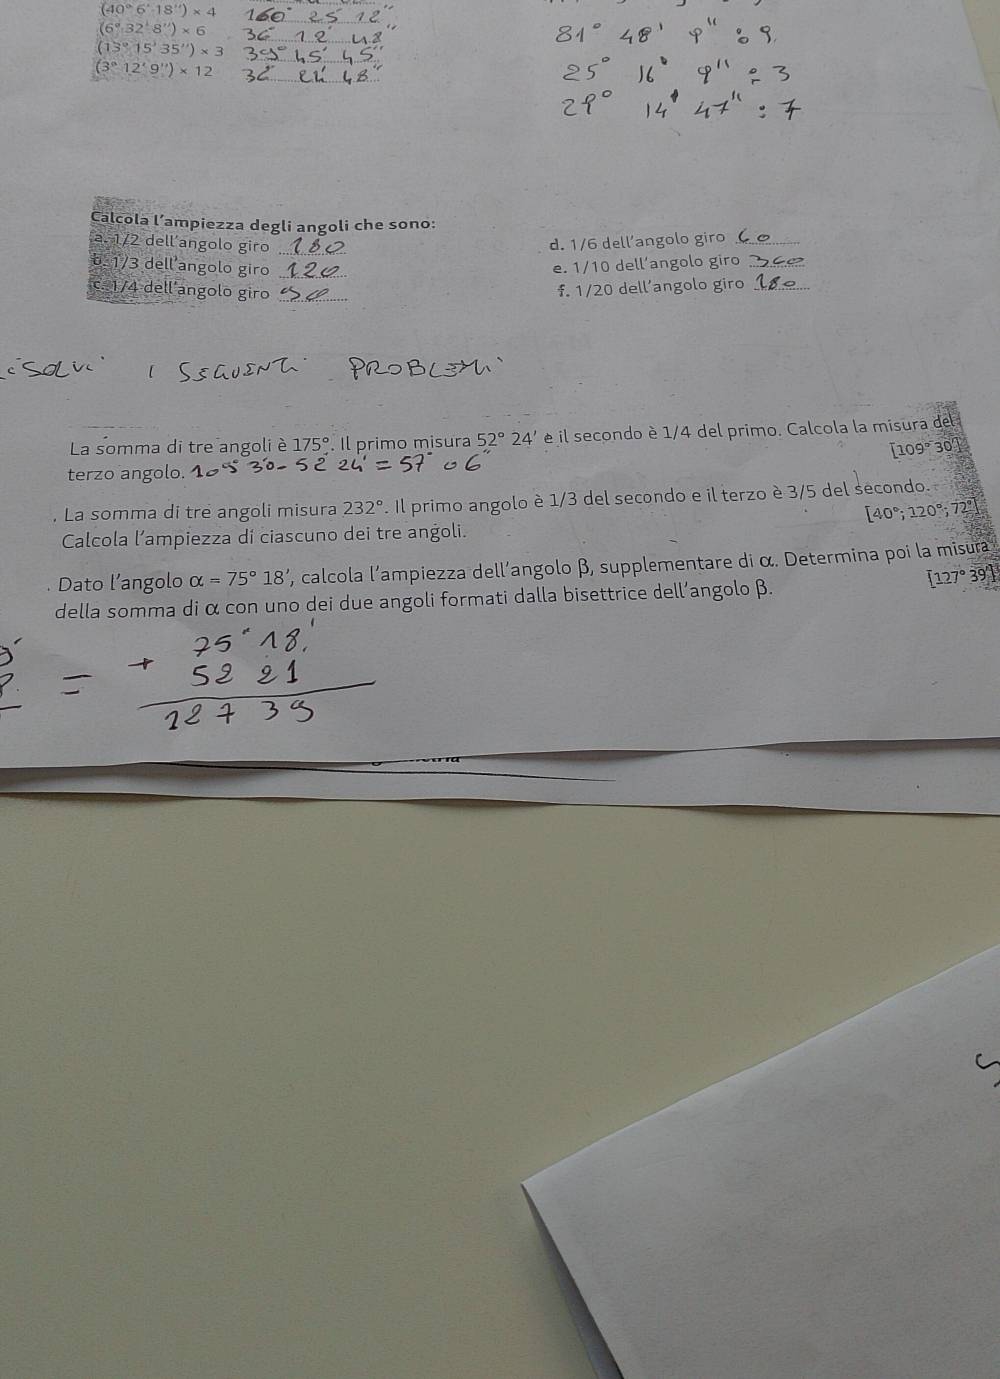 (40° 6' 18'') × 4 160° 25' 12''
(6° 32' 8'') × 6 36° 12' 48''
(13° 15' 35'') × 3 39° 45' 45''
(3° 12' 9'') × 12 36° 24' 48''
81° 48' 9'' : 9
25° 16' 9'' : 3
29° 14' 47'' : 7
Calcola l'ampiezza degli angoli che sono:
a. 1/2 dell'angolo giro 180
b. 1/3 dell'angolo giro 120
c. 1/4 dell'angolo giro 90
d. 1/6 dell'angolo giro 60
e. 1/10 dell'angolo giro 360
f. 1/20 dell'angolo giro 180
RISOLVI I SEGUENTI PROBLEMI
La somma di tre angoli è 175°. Il primo misura 52° 24' e il secondo è 1/4 del primo. Calcola la misura del
terzo angolo. 109° 30 - 52 24' = 57° 06'' [109° 30']
. La somma di tre angoli misura 232°. Il primo angolo è 1/3 del secondo e il terzo è 3/5 del secondo.
Calcola l'ampiezza di ciascuno dei tre angoli. [40°; 120°; 72°]
. Dato l'angolo α = 75° 18', calcola l'ampiezza dell'angolo β, supplementare di α. Determina poi la misura
della somma di α con uno dei due angoli formati dalla bisettrice dell'angolo β. [127° 39']
75° 18'
= + 52 21
127 39